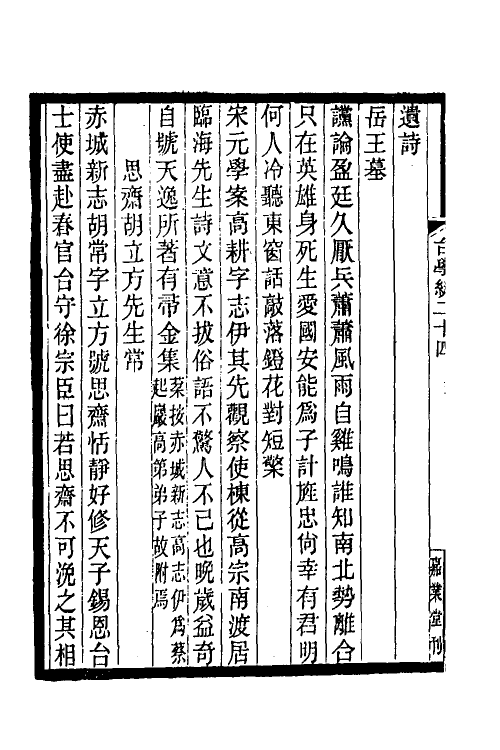 台學統二十四
嘉業堂刊
遺詩
岳王墓
讜論盈廷久厭兵蕭蕭風雨自雞鳴誰知南北勢離合
只在英雄身死生愛國安能爲子計旌忠尙幸有君明
何人冷聽東窗話敲落鐙花對短檠
宋元學案高耕字志伊其先觀察使棟從高宗南渡居
臨海先生詩文意不拔俗語不驚人不已也晚歲益奇
自號天逸所著有帚金集
棻按赤城新志高志伊爲蔡
起巖高第弟子故附焉
思齋胡立方先生常
赤城新志胡常字立方號思齋恬靜好修天子錫恩台
士使盡赴春官台守徐宗臣曰若思齋不可浼之其相